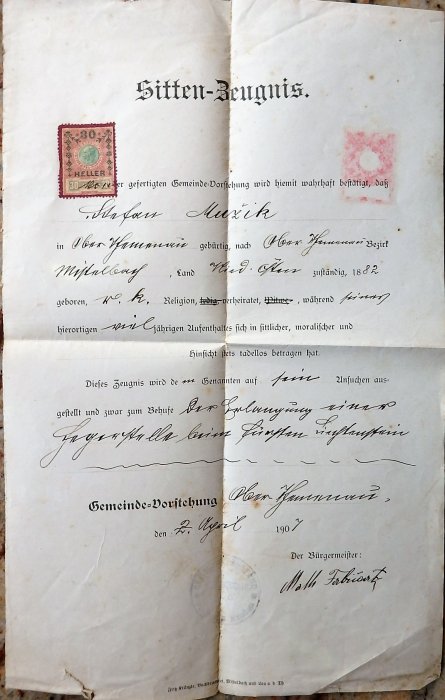 Sitten-Zeugnis.
30
HELLER
der gefertigten Gemeinde-Vorstehung wird hiemit wahrhaft bestätigt, daß
Stefan Mužik
in Ober Themenau gebürtig, nach Ober Themenau Bezirk
Mistelbach, Land Nied. Östen zuständig, 1882
geboren, r. k. Religion, ledig, verheiratet, Witwe, während seines
hierortigen viel jährigen Aufenthaltes sich in sittlicher, moralischer und
Hinsicht stets tadellos betragen hat.
Dieses Zeugnis wird dem Genannten auf sein Ansuchen aus-
gestellt und zwar zum Behufe der Erlangung einer
Hegerstelle beim Fürsten Liechtenstein
Gemeinde-Vorstehung Ober Themenau,
den 2. April 1907
Der Bürgermeister:
Math
Mistelbach und Laa a. d. Th